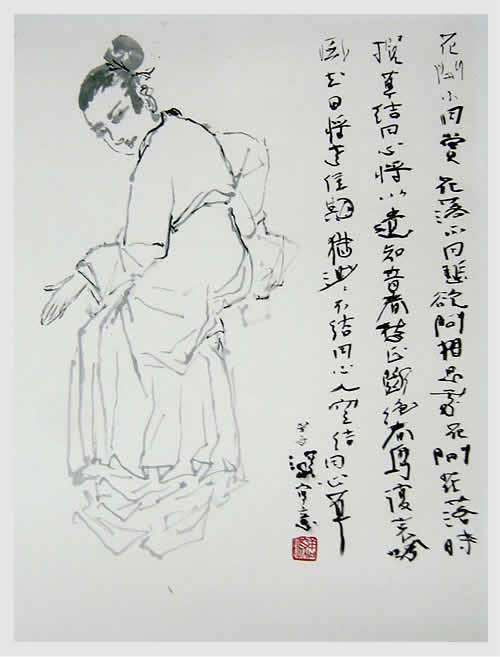 花開不同賞花落不同悲欲問相思處花開花落時
攬草結同心將以遺知音春愁正斷絕春鳥復哀吟
風花日將老佳期猶渺々不結同心人空結同心草